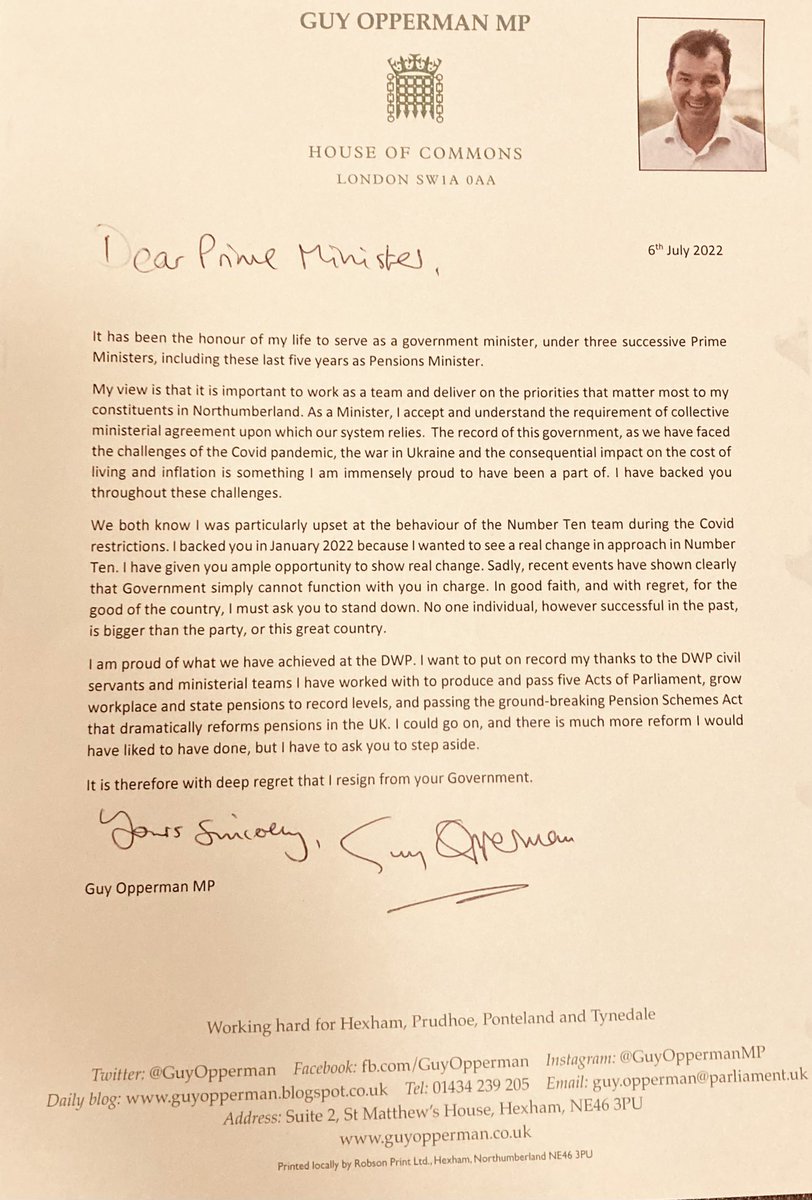 GUY OPPERMAN MP
HOUSE OF COMMONS
LONDON SW1A 0AA
Dear Prime Minister,
6th July 2022
It has been the honour of my life to serve as a government minister, under three successive Prime
Ministers, including these last five years as Pensions Minister.
My view is that it is important to work as a team and deliver on the priorities that matter most to my
constituents in Northumberland. As a Minister, I accept and understand the requirement of collective
ministerial agreement upon which our system relies. The record of this government, as we have faced
the challenges of the Covid pandemic, the war in Ukraine and the consequential impact on the cost of
living and inflation is something I am immensely proud to have been a part of. I have backed you
throughout these challenges.
We both know I was particularly upset at the behaviour of the Number Ten team during the Covid
restrictions. I backed you in January 2022 because I wanted to see a real change in approach in Number
Ten. I have given you ample opportunity to show real change. Sadly, recent events have shown clearly
that Government simply cannot function with you in charge. In good faith, and with regret, for the
good of the country, I must ask you to stand down. No one individual, however successful in the past,
is bigger than the party, or this great country.
I am proud of what we have achieved at the DWP. I want to put on record my thanks to the DWP civil
servants and ministerial teams I have worked with to produce and pass five Acts of Parliament, grow
workplace and state pensions to record levels, and passing the ground-breaking Pension Schemes Act
that dramatically reforms pensions in the UK. I could go on, and there is much more reform I would
have liked to have done, but I have to ask you to step aside.
It is therefore with deep regret that I resign from your Government.
Yours Sincerely, Guy Opperman
Guy Opperman MP
Working hard for Hexham, Prudhoe, Ponteland and Tynedale
Twitter: @GuyOpperman Facebook: fb.com/GuyOpperman Instagram: @GuyOppermanMP
Daily blog: www.guyopperman.blogspot.co.uk Tel: 01434 239 205 Email: guy.opperman@parliament.uk
Address: Suite 2, St Matthew's House, Hexham, NE46 3PU
www.guyopperman.co.uk
Printed locally by Robson Print Ltd., Hexham, Northumberland NE46 3PU